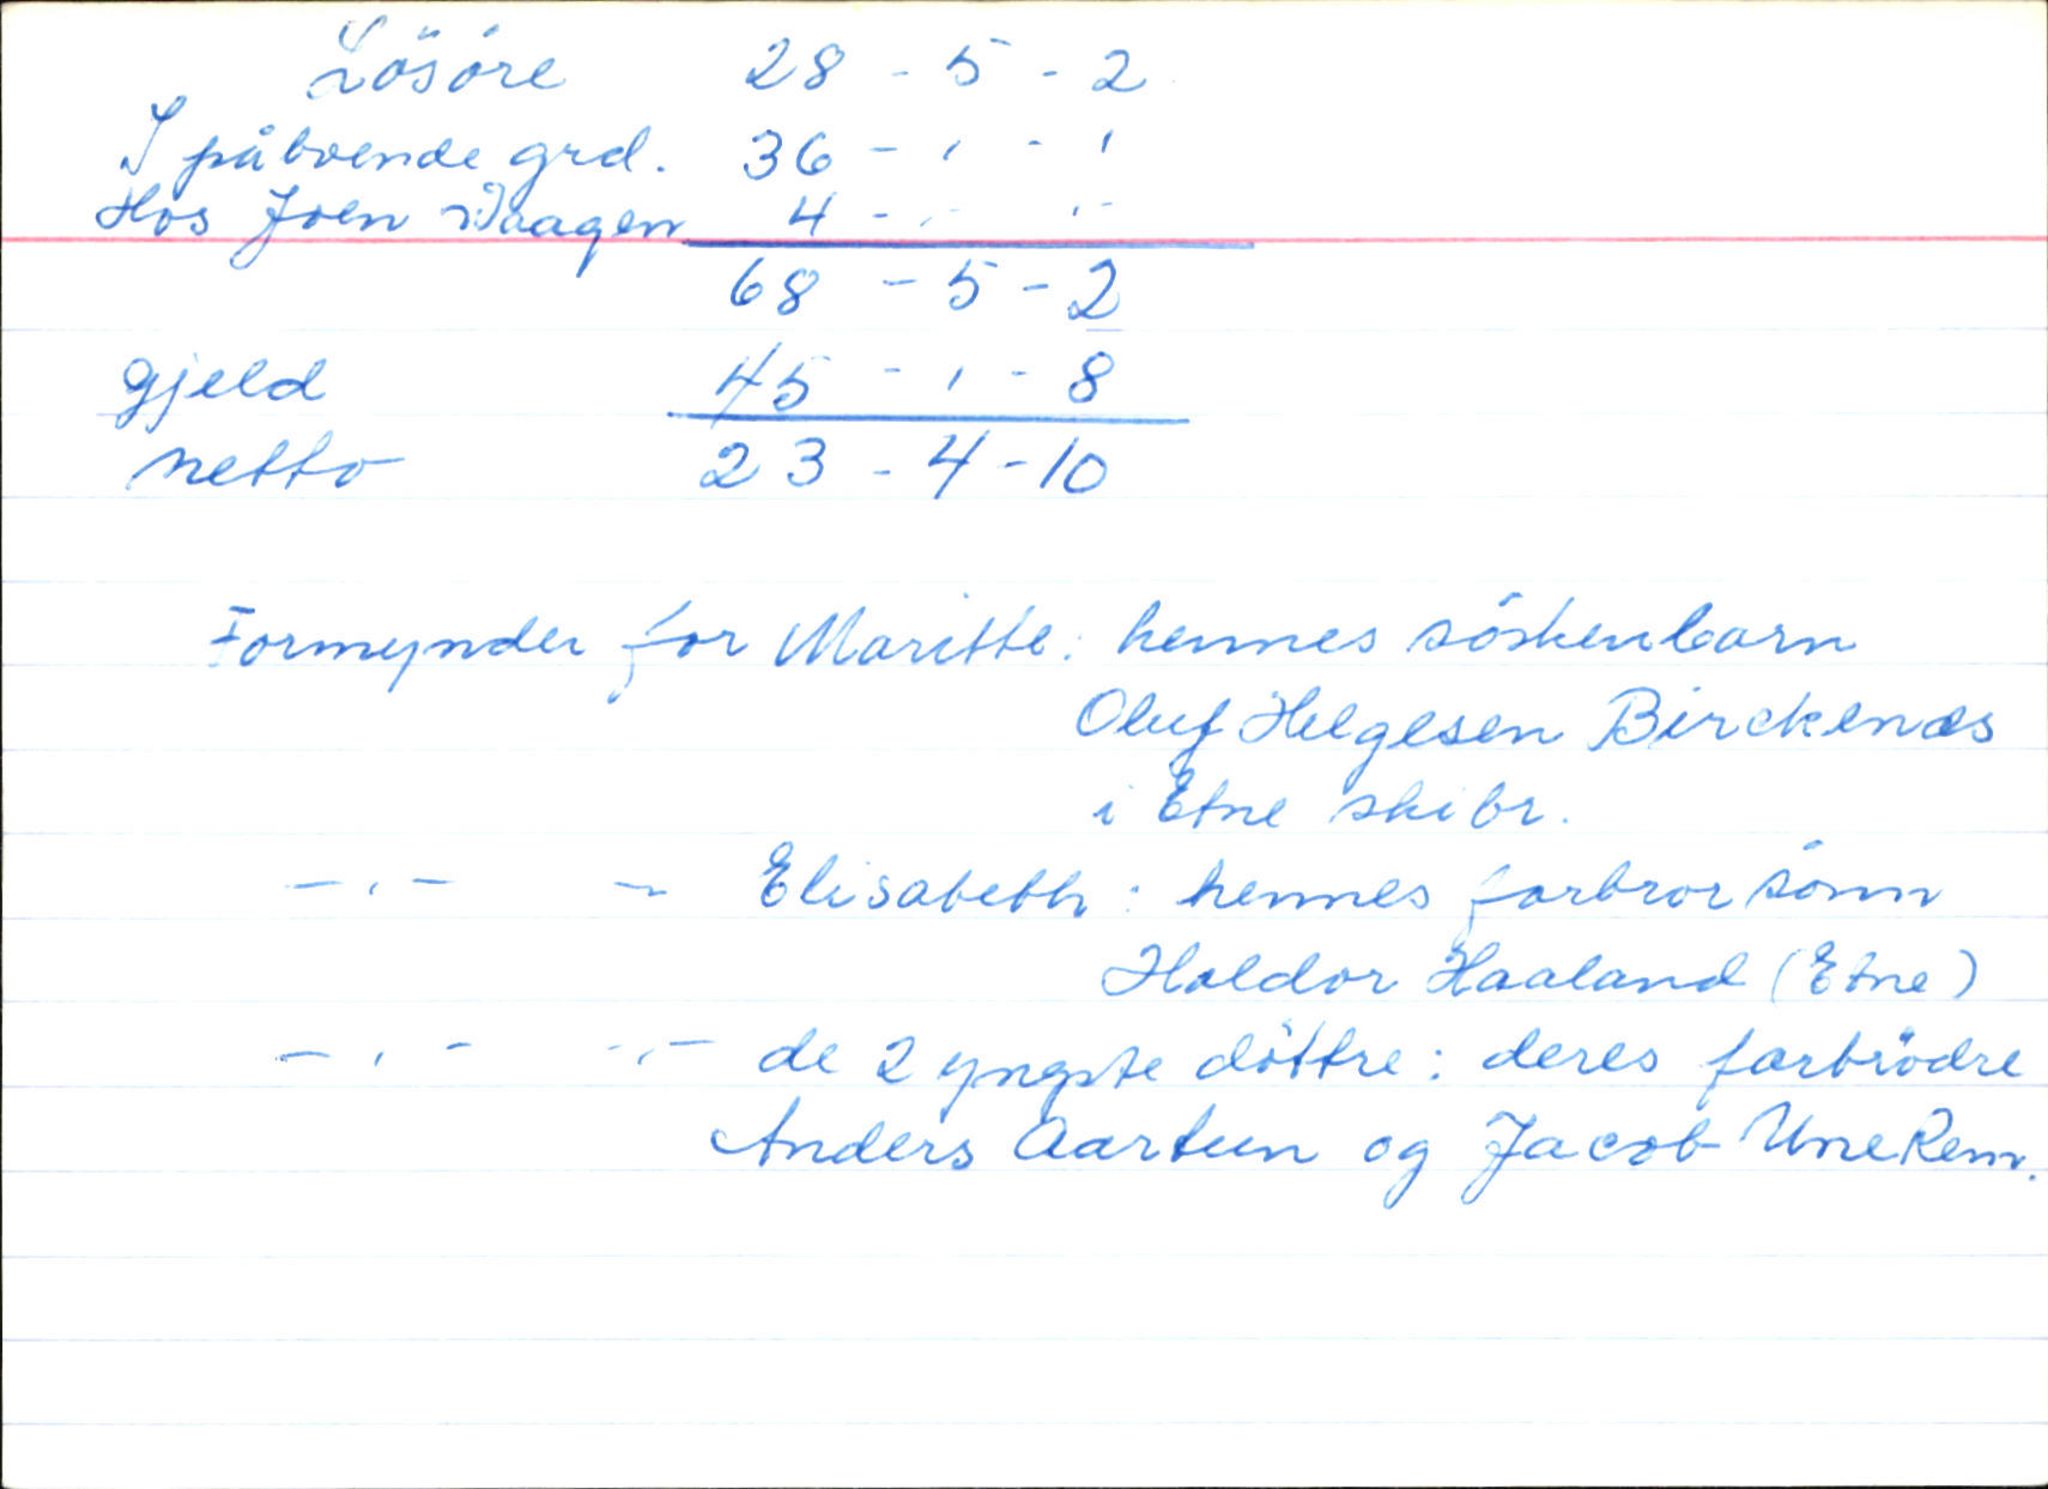 Lösöre 28 - 5 - 2
I påboende grd. 36 - , - ,
Hos Joen Waagen 4 - , - , -
68 - 5 - 2
gjeld 45 - , - 8
netto 23 - 4 - 10
Formynder for Maritte: hennes söskenbarn
Oluf Helgesen Birckenæs
i Etne skibr.
- , - - Elisabeth: hennes farbror sönn
Haldor Haaland (Etne)
- , - - , - de 2 yngste döttre: deres farbrödre
Anders Aartun og Jacob